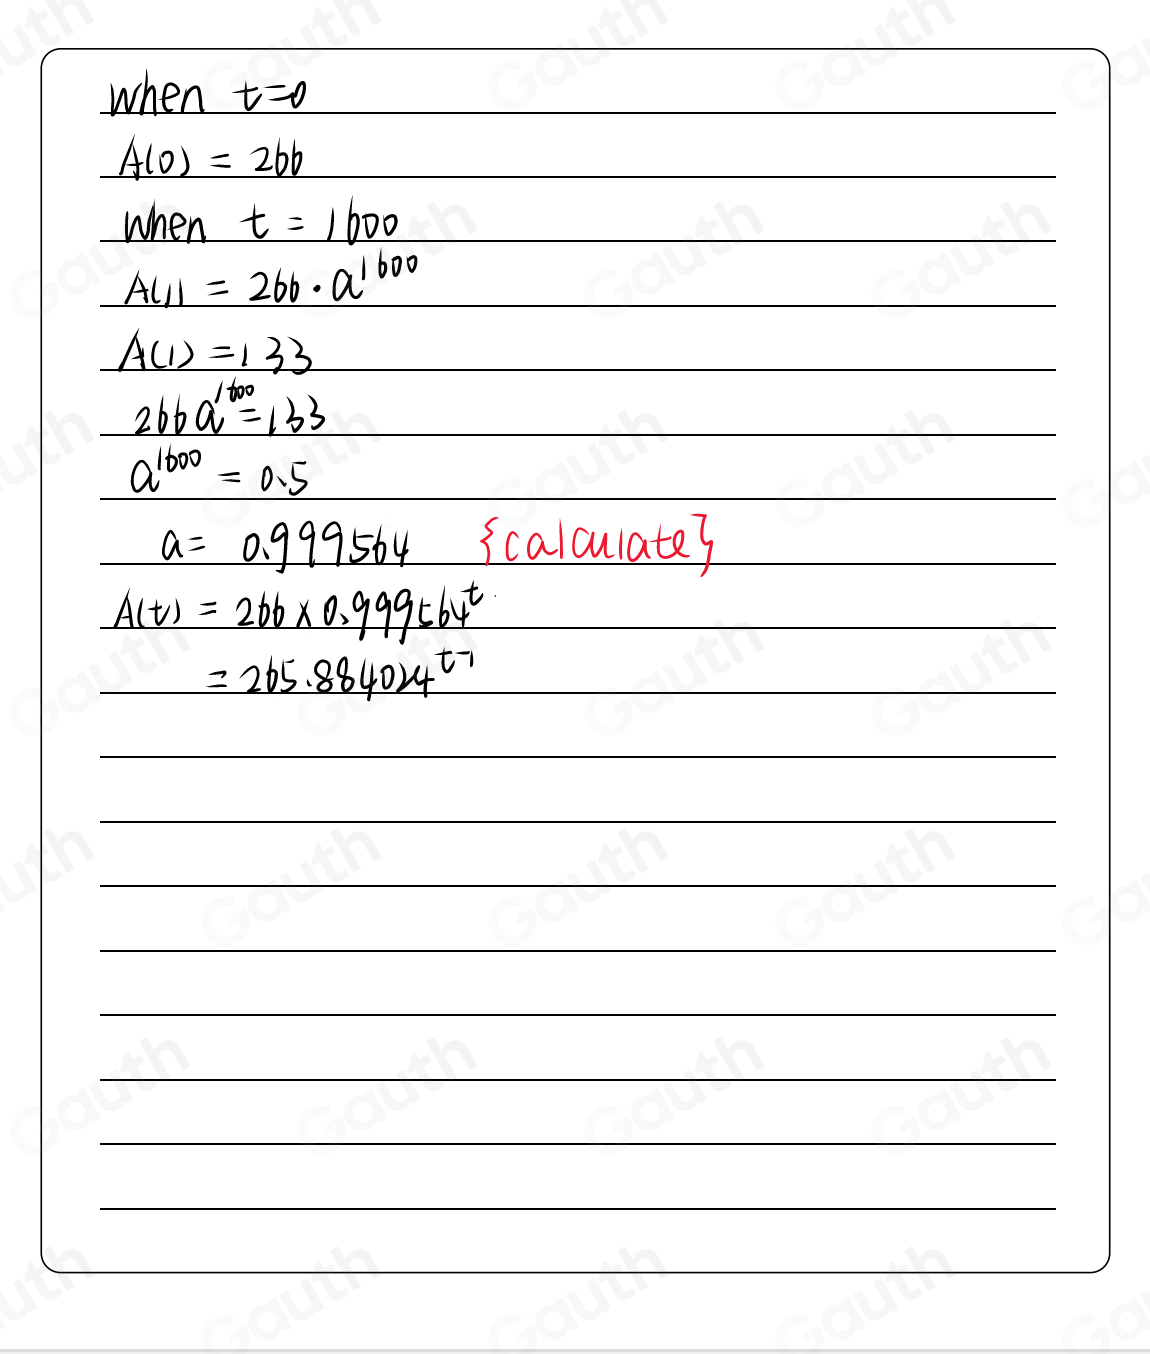 when t=0
A(0) = 266
when t = 1600
A(1) = 266 · a^1600
A(1) = 133
266a^1600 = 133
a^1600 = 0.5
a = 0.999564 {calculate}
A(t) = 266 × 0.999564^t
= 265.884024^t-1